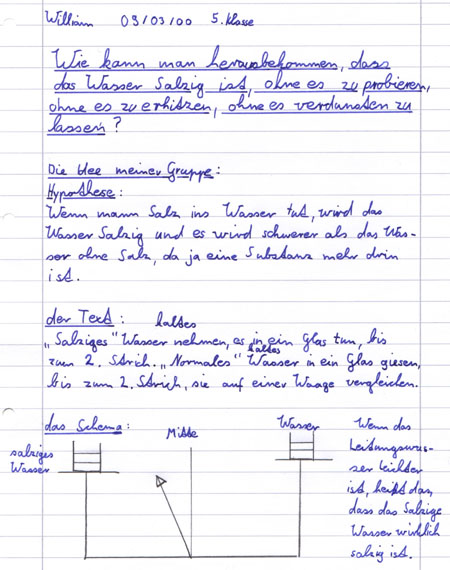 William 09/03/00 5. Klasse
Wie kann man herausbekommen, dass
das Wasser Salzig ist, ohne es zu probieren,
ohne es zu erhitzen, ohne es verdunsten zu
lassen?
Die Idee meiner Gruppe:
Hypothese:
Wenn mann Salz ins Wasser tut, wird das
Wasser Salzig und es wird schwerer als das Was-
ser ohne Salz, da ja eine Substanz mehr drin
ist.
der Text: kaltes
„Salziges" Wasser nehmen, es in ein Glas tun, bis
kaltes
zum 2. Strich. „Normales" Wasser in ein Glas giesen,
bis zum 2. Strich, sie auf einer Waage vergleichen.
das Schema:
salziges
Wasser
Mitte
Wasser
Wenn das
Leitungswas-
ser leichter
ist, heißt das,
dass das Salzige
Wasser wirklich
salzig ist.